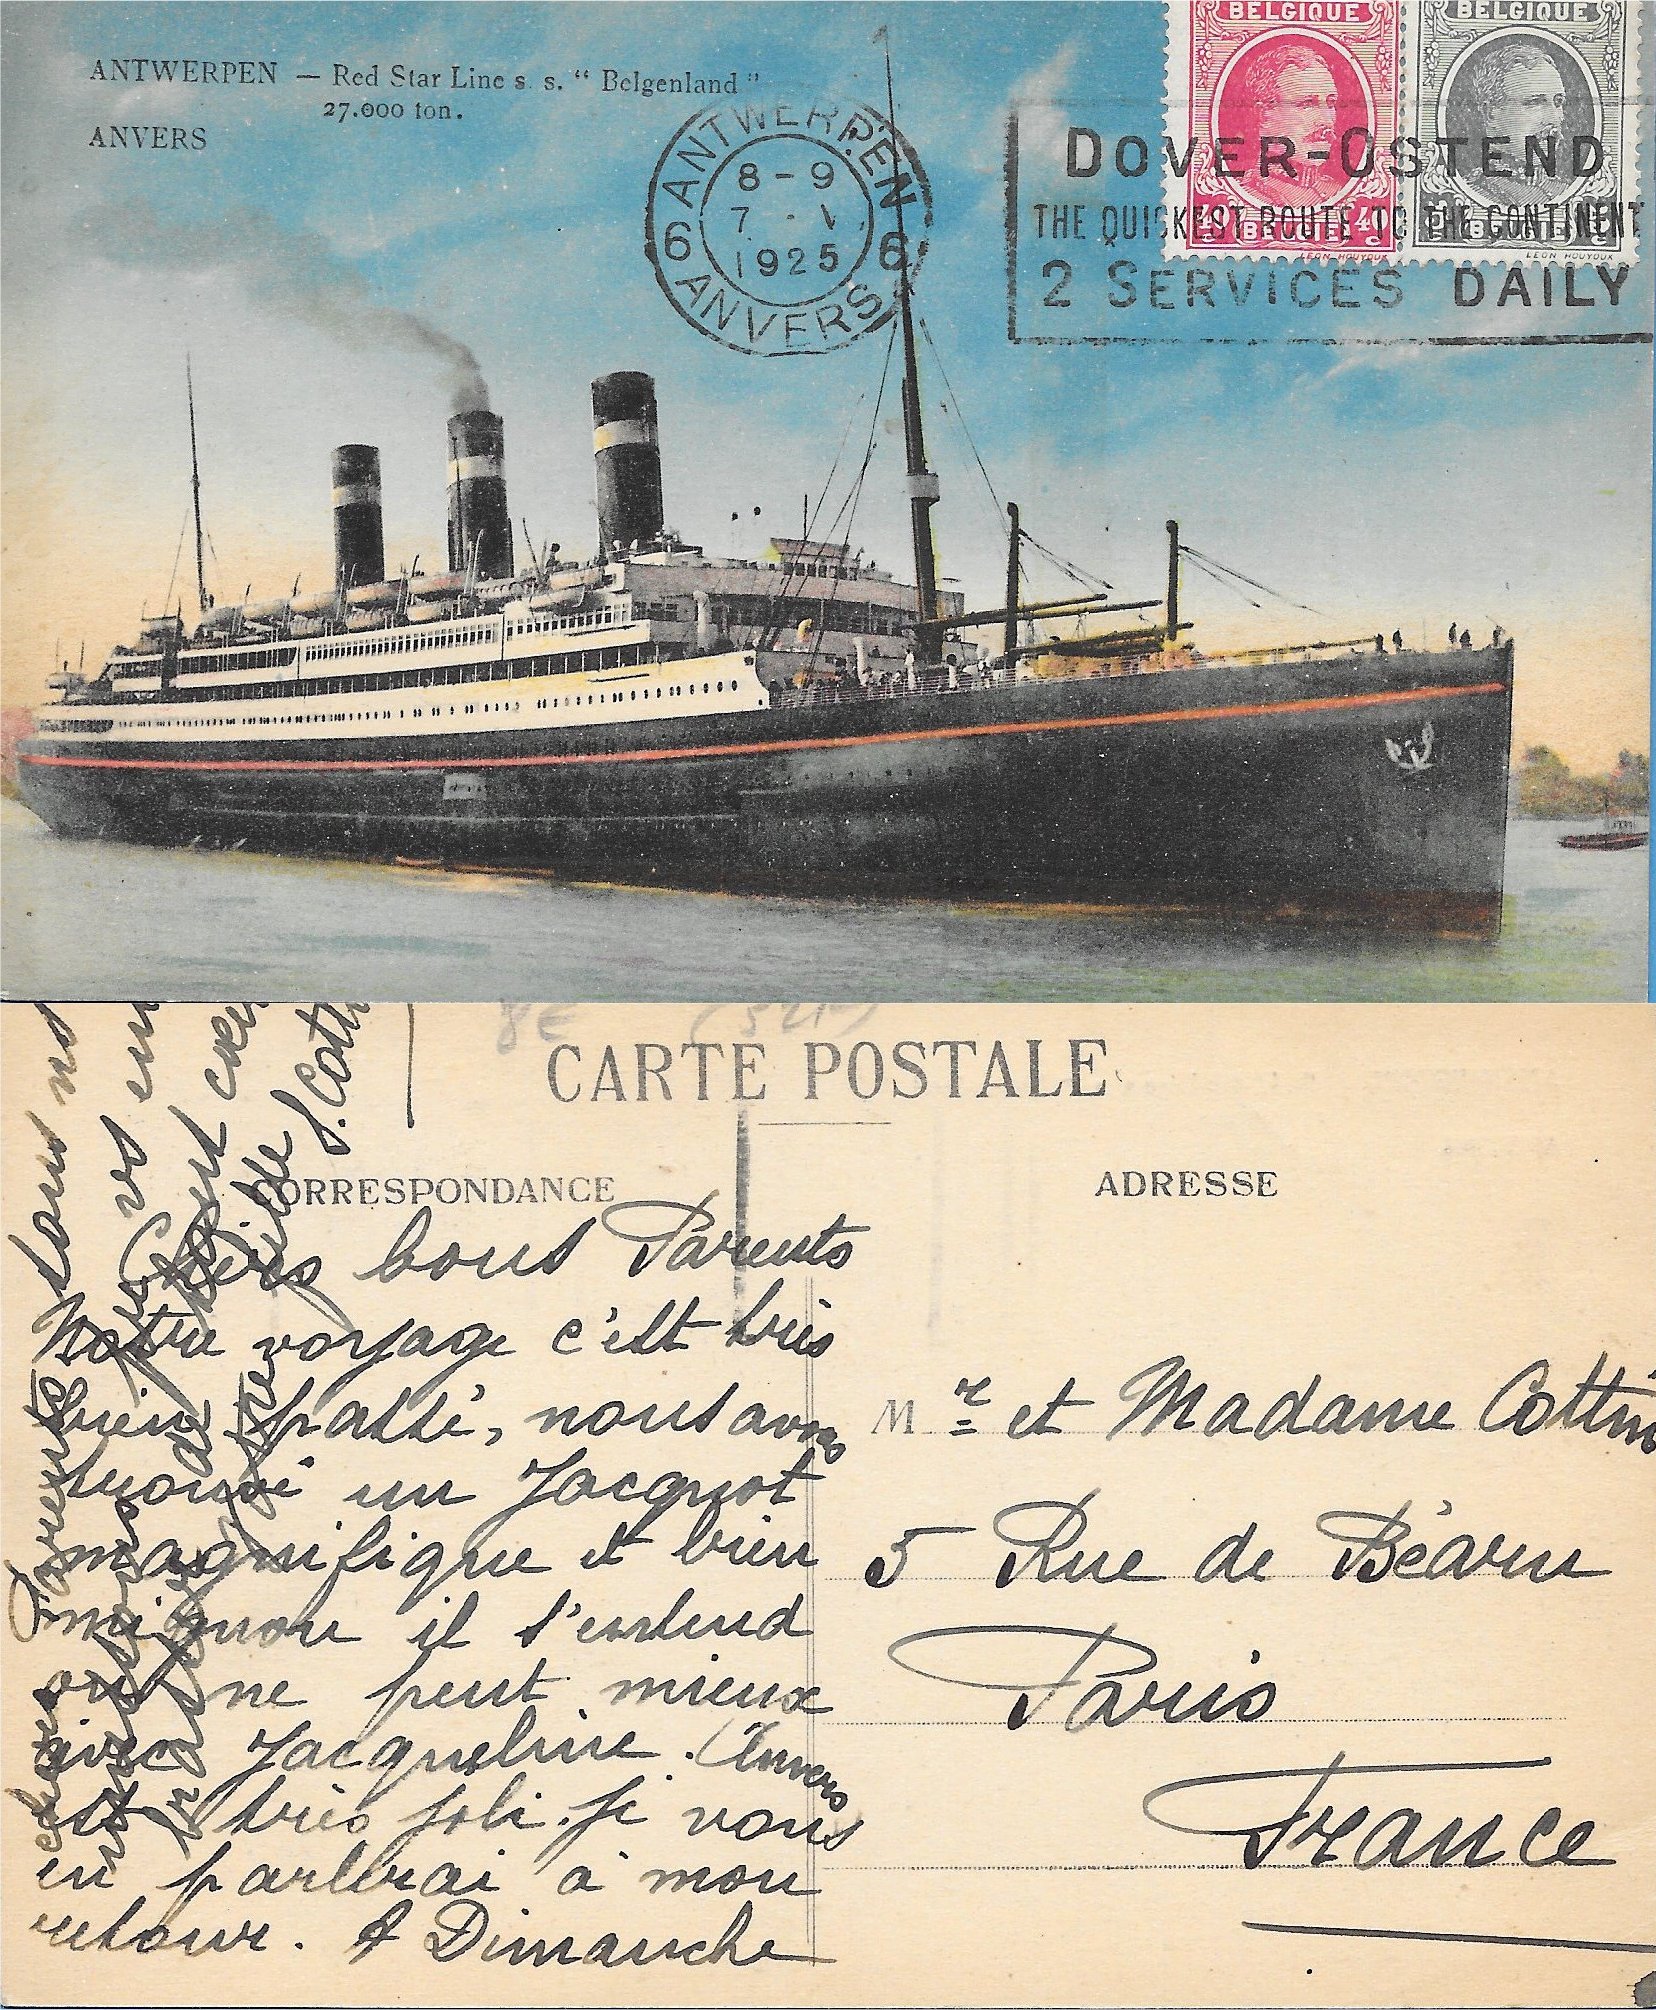 ANTWERPEN — Red Star Line s. s. “ Belgenland ”
27.000 ton.
ANVERS
ANTWERPEN
6 6
8 - 9
7 . V
1925
ANVERS
BELGIQUE BELGIQUE
DOVER-OSTEND
THE QUICKEST ROUTE TO THE CONTINENT
2 SERVICES DAILY
LEON HOUYOUX LEON HOUYOUX
8€
CARTE POSTALE
CORRESPONDANCE
ADRESSE
Chers bons Parents
Notre voyage c'est très
bien passé, nous avons
trouvé un Jacquot
magnifique et bien
mignon il s'entend
on ne peut mieux
avec Jacqueline. (Anvers
est très joli. je vous
en parlerai à mon
retour. A Dimanche
chers Parents
Mr et Madame Cottin
5 Rue de Béarn
Paris
France